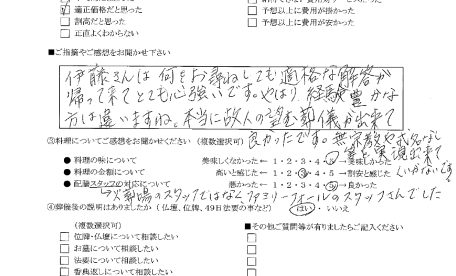 適正価格だと思った
割高だと思った
正直よくわからない
予想以上に費用が掛かった
予想以上に費用が安かった
■ご指摘やご感想をお聞かせ下さい
伊藤さんは何をお尋ねしても適格な解答が
帰って来てとても心強いです。やはり経験豊かな
方は違いますね。本当に故人の望む葬儀が出来て
良かったです。無宗教や戒名なし
等を実現出来て
③料理についてご感想をお聞かせください(複数選択可)
● 料理の味について 美味しくなかった←1・2・3・4・5→美味しかった
● 料理の金額について 高いと感じた←1・2・3・4・5→割安と感じた
● 配膳スタッフの対応について 悪かった←1・2・3・4・5→良かった
火葬場のスタッフではなくファミリーフィールのスタッフさんでした
④葬儀後の説明はありましたか(仏壇、位牌、49日法要の事など) はい・いいえ
(複数選択可)
位牌・仏壇について相談したい
お墓について相談したい
法要について相談したい
香典返しについて相談したい
■その他ご質問等が有りましたらご記入ください